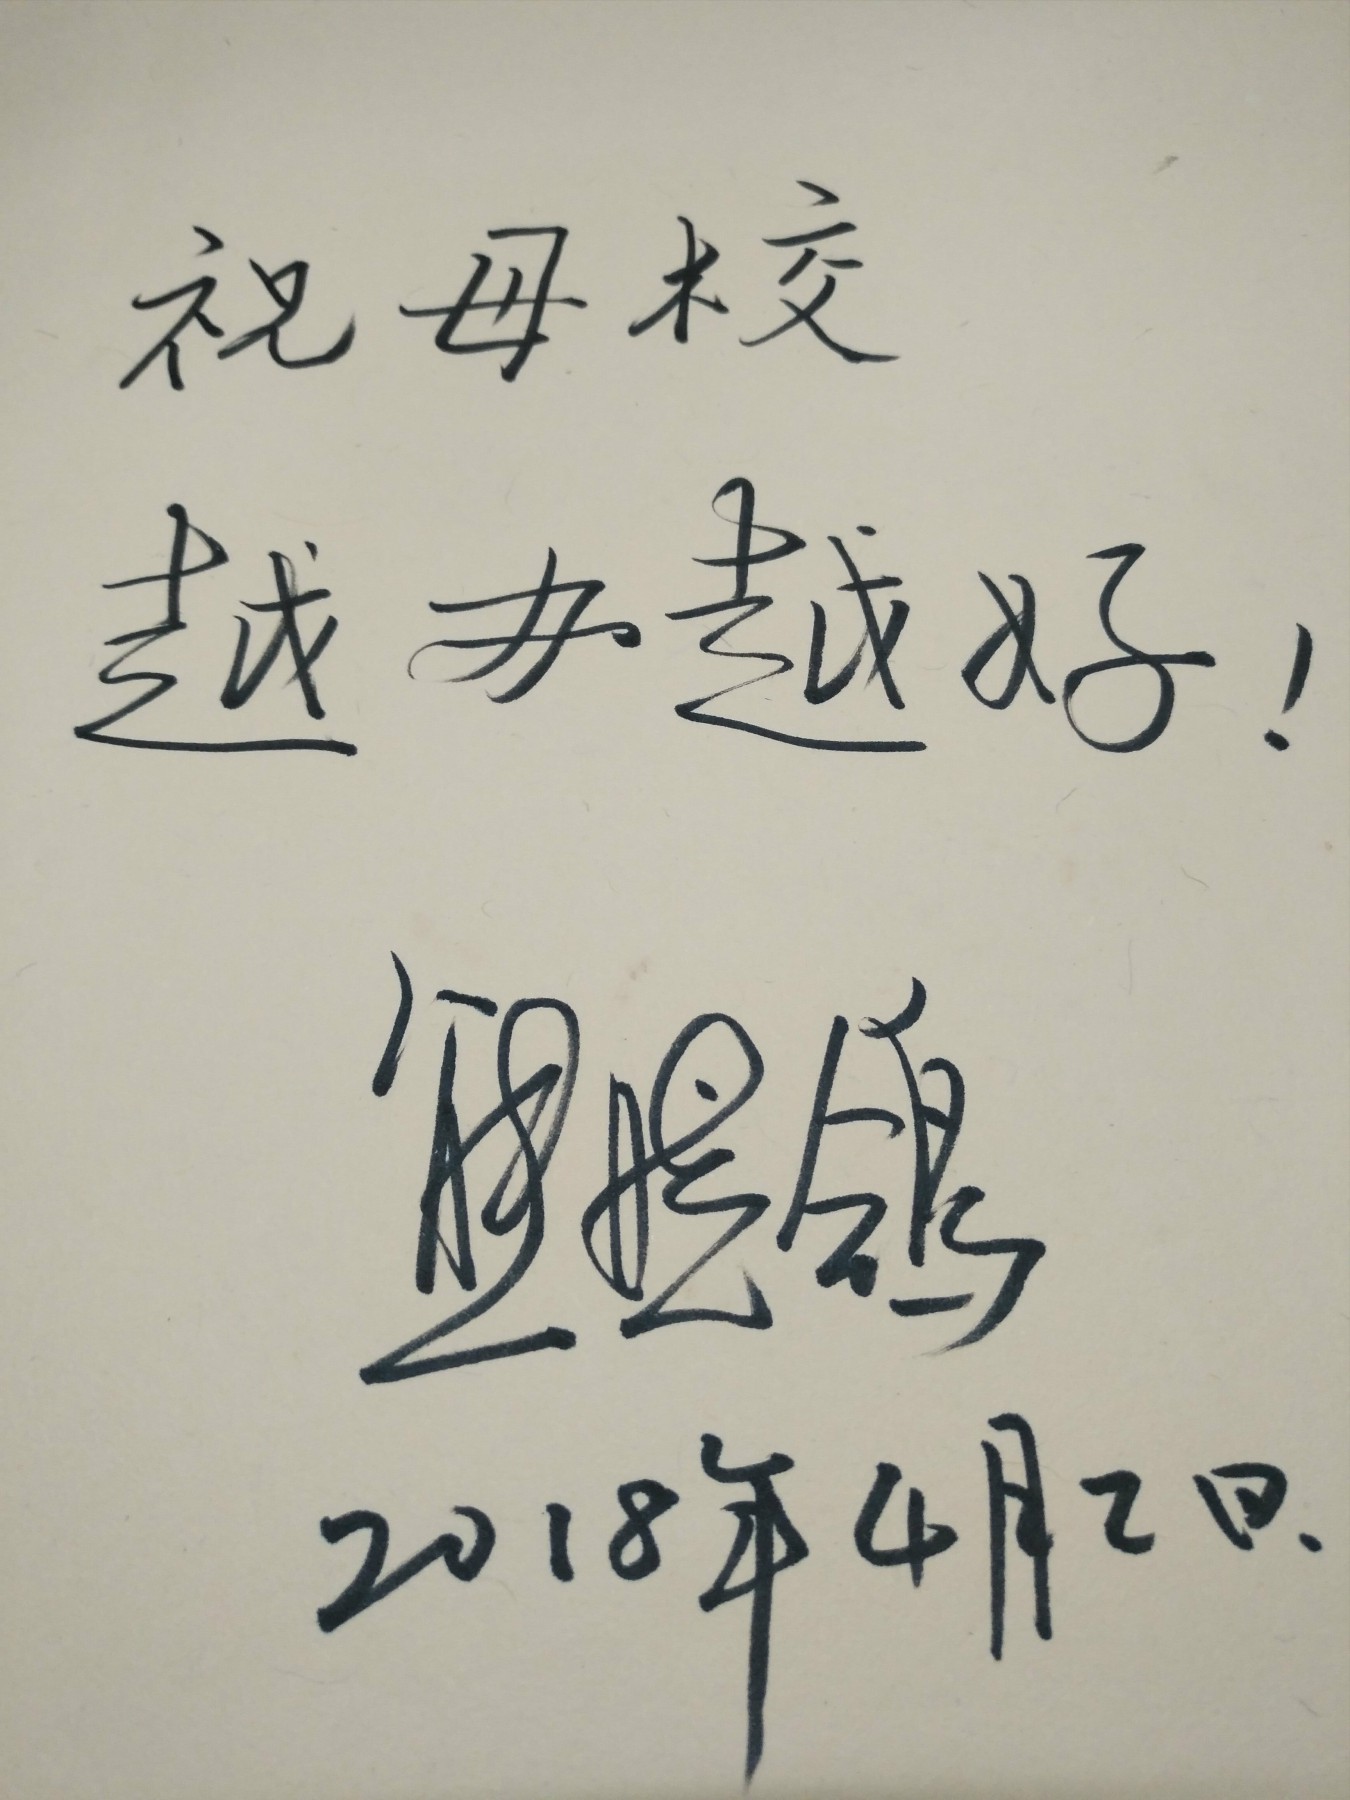 祝母校
越办越好!
2018年4月2日.